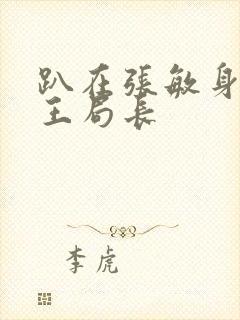 趴在張敏身
王局長
李虎